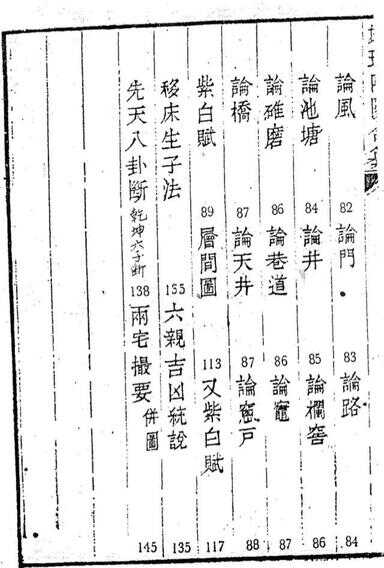 論風 82 論門 83 論路 84
論池塘 84 論井 85 論欄窖 86
論碓磨 86 論巷道 86 論竈 87
論橋 87 論天井 87 論窓戶 88
紫白賦 89 層間圖 113 又紫白賦 117
移床生子法 135 六親吉凶統說 135
先天八卦斷 乾坤六子斷 138 兩宅撮要 併圖 145